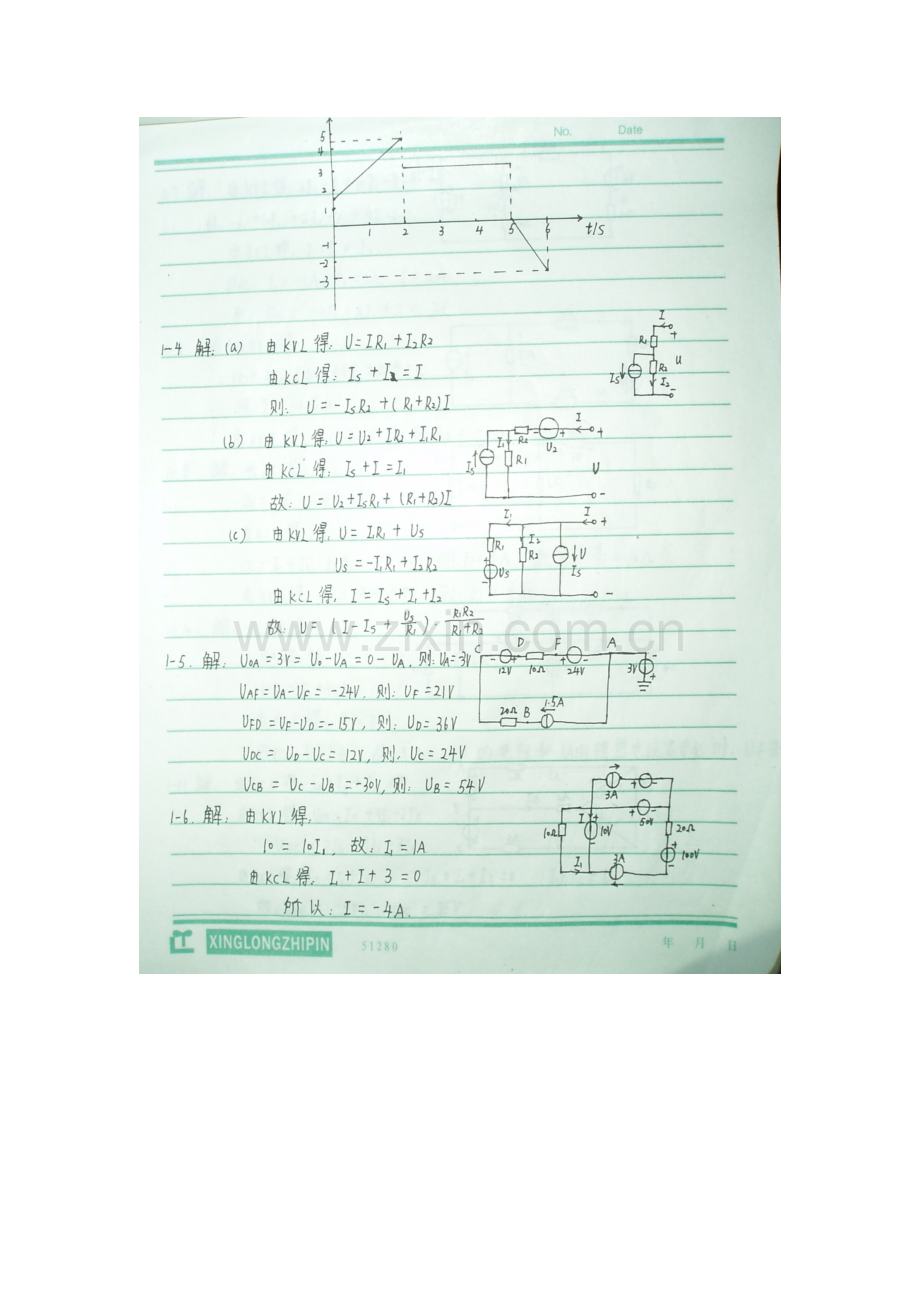 No. Date
5
4
3
2
1
1 2 3 4 5 6 t/s
-1
-2
-3
1-4 解: (a) 由KVL得: U=IR₁+I₂R₂
由KCL得: Is+I₂=I
则: U=-IsR₂+(R₁+R₂)I
I
+
R₁
U
R₂
Is
I₂
-
(b) 由KVL得: U=U₂+IR₂+I₁R₁
由KCL得: Is+I=I₁
故: U=U₂+IsR₁+(R₁+R₂)I
I
I₁ R₂ - + +
U₂
Is R₁ U
-
(c) 由KVL得, U=I₁R₁+Us
Us=-I₁R₁+I₂R₂
由KCL得, I=Is+I₁+I₂
故: U=(I-Is+Us/R₁)·R₁R₂/R₁+R₂
I₁ I
+
R₁ I₂
R₂ U
+ Us Is
-
www.zixin.com.cn
1-5. 解: U₀A=3V=U₀-UA=0-UA, 则: UA=-3V
UAF=UA-UF=-24V, 则: UF=21V
UFD=UF-UD=-15V, 则: UD=36V
UDC=UD-UC=12V, 则, UC=24V
UCB=UC-UB=-30V, 则: UB=54V
C D F A
- + + - -
12V 10Ω 24V 3V
+
1.5A
20Ω B
1-6. 解: 由KVL得,
10=10I₁, 故: I₁=1A
由KCL得, I₁+I+3=0
所以: I=-4A.
3A + -
+ -
I + 50V
10Ω 10V 20Ω
- +
I₁ 3A 100V
-
XINGLONGZHIPIN 51280 年 月 日